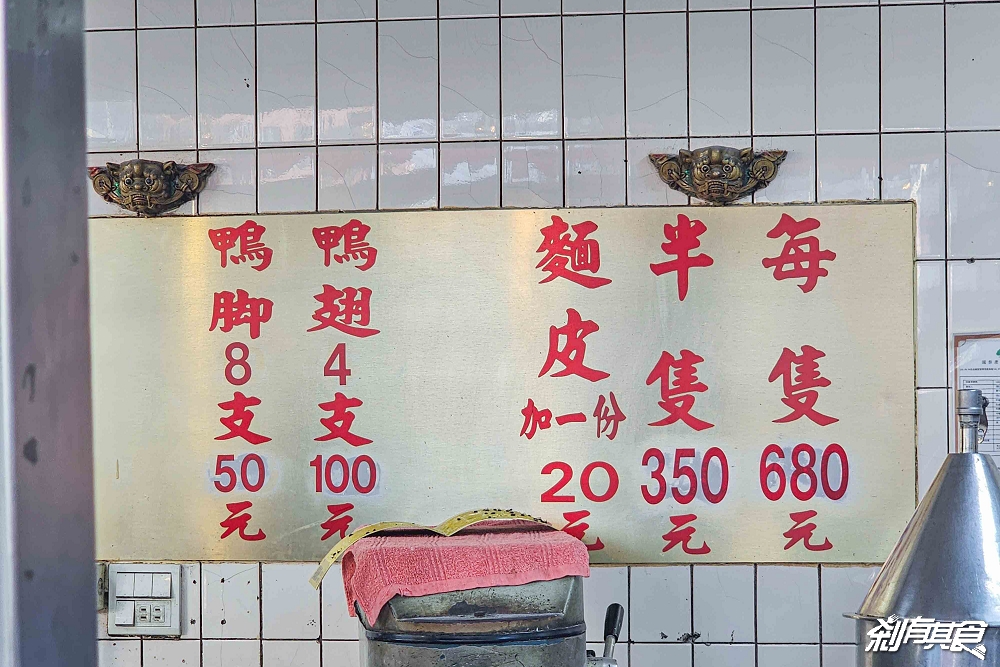 每隻680元
半隻350元
麵皮加一份20元
鴨翅4支100元
鴨脚8支50元
剎有其食